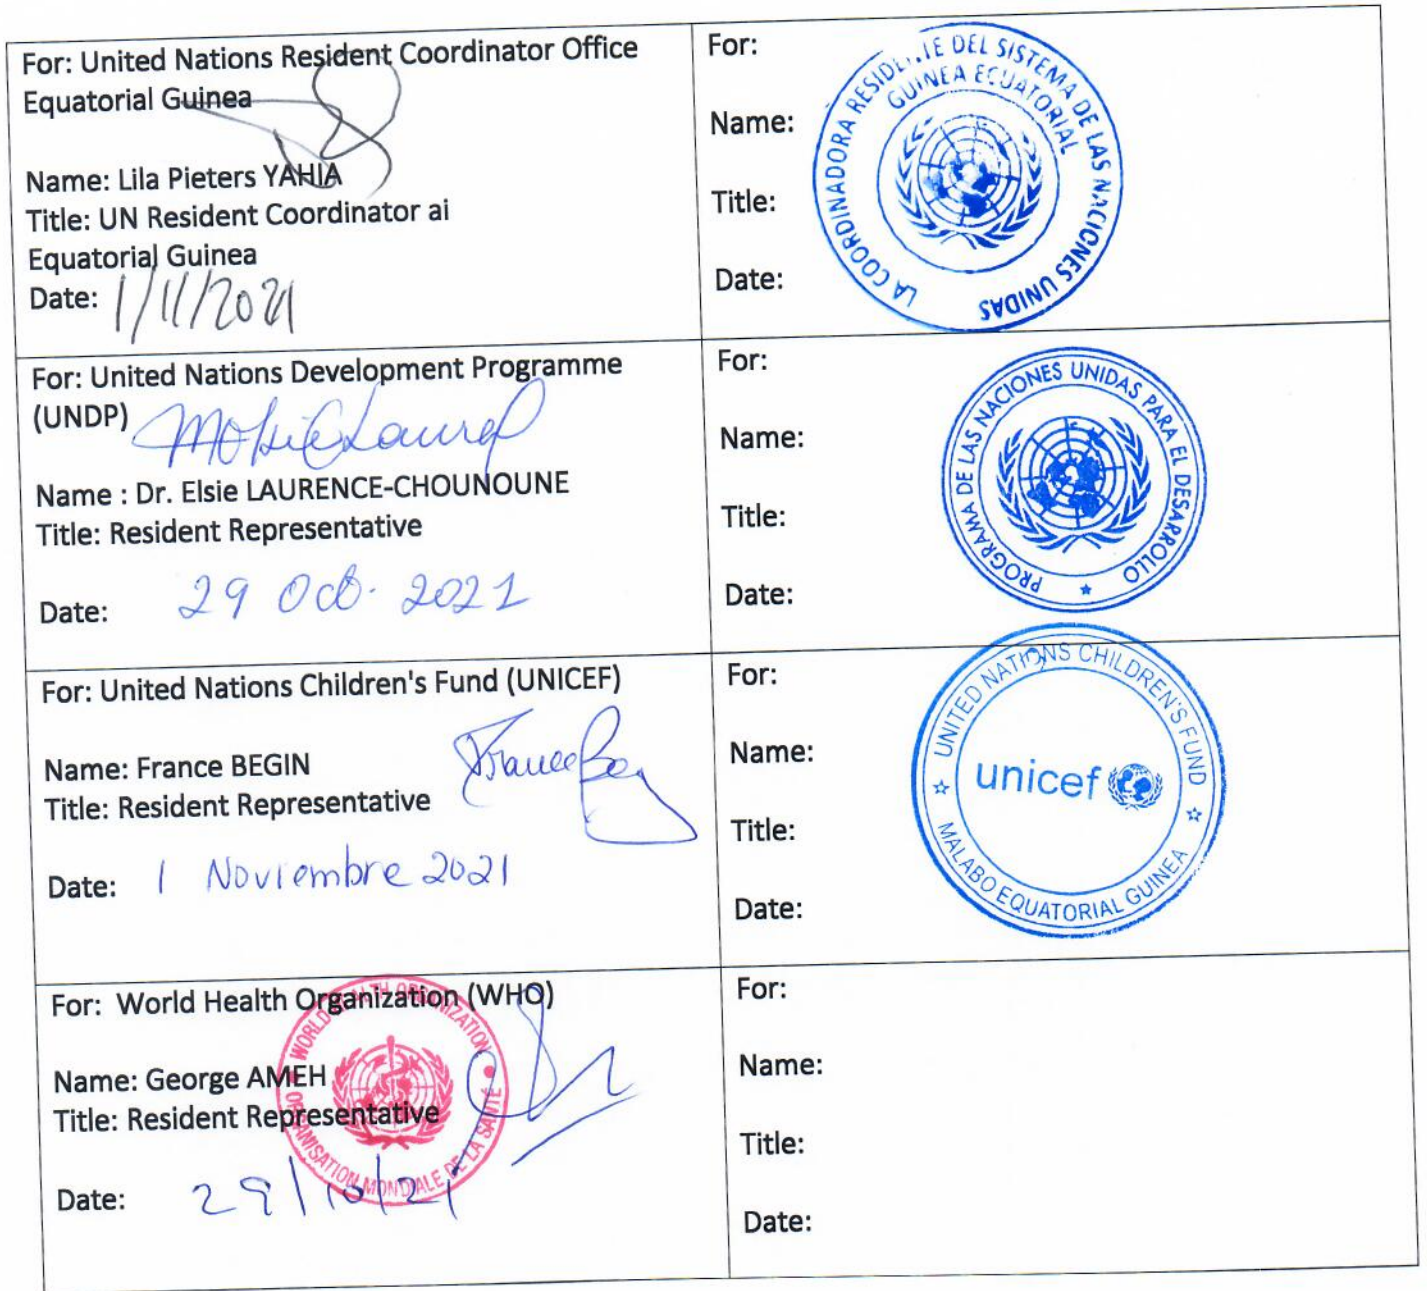 For: United Nations Resident Coordinator Office
Equatorial Guinea
Name: Lila Pieters YAHIA
Title: UN Resident Coordinator ai
Equatorial Guinea
Date: 1/11/2021
For:
Name:
Title:
Date:
LA COORDINADORA RESIDENTE DEL SISTEMA DE LAS NACIONES UNIDAS
GUINEA ECUATORIAL
For: United Nations Development Programme
(UNDP)
Name : Dr. Elsie LAURENCE-CHOUNOUNE
Title: Resident Representative
Date: 29 Oct. 2021
For:
Name:
Title:
Date:
PROGRAMA DE LAS NACIONES UNIDAS PARA EL DESARROLLO
For: United Nations Children's Fund (UNICEF)
Name: France BEGIN
Title: Resident Representative
Date: 1 Noviembre 2021
For:
Name:
Title:
Date:
UNITED NATIONS CHILDREN'S FUND
unicef
MALABO EQUATORIAL GUINEA
For: World Health Organization (WHO)
Name: George AMEH
Title: Resident Representative
Date: 29/10/21
WORLD HEALTH ORGANIZATION
ORGANISATION MONDIALE DE LA SANTÉ
For:
Name:
Title:
Date: